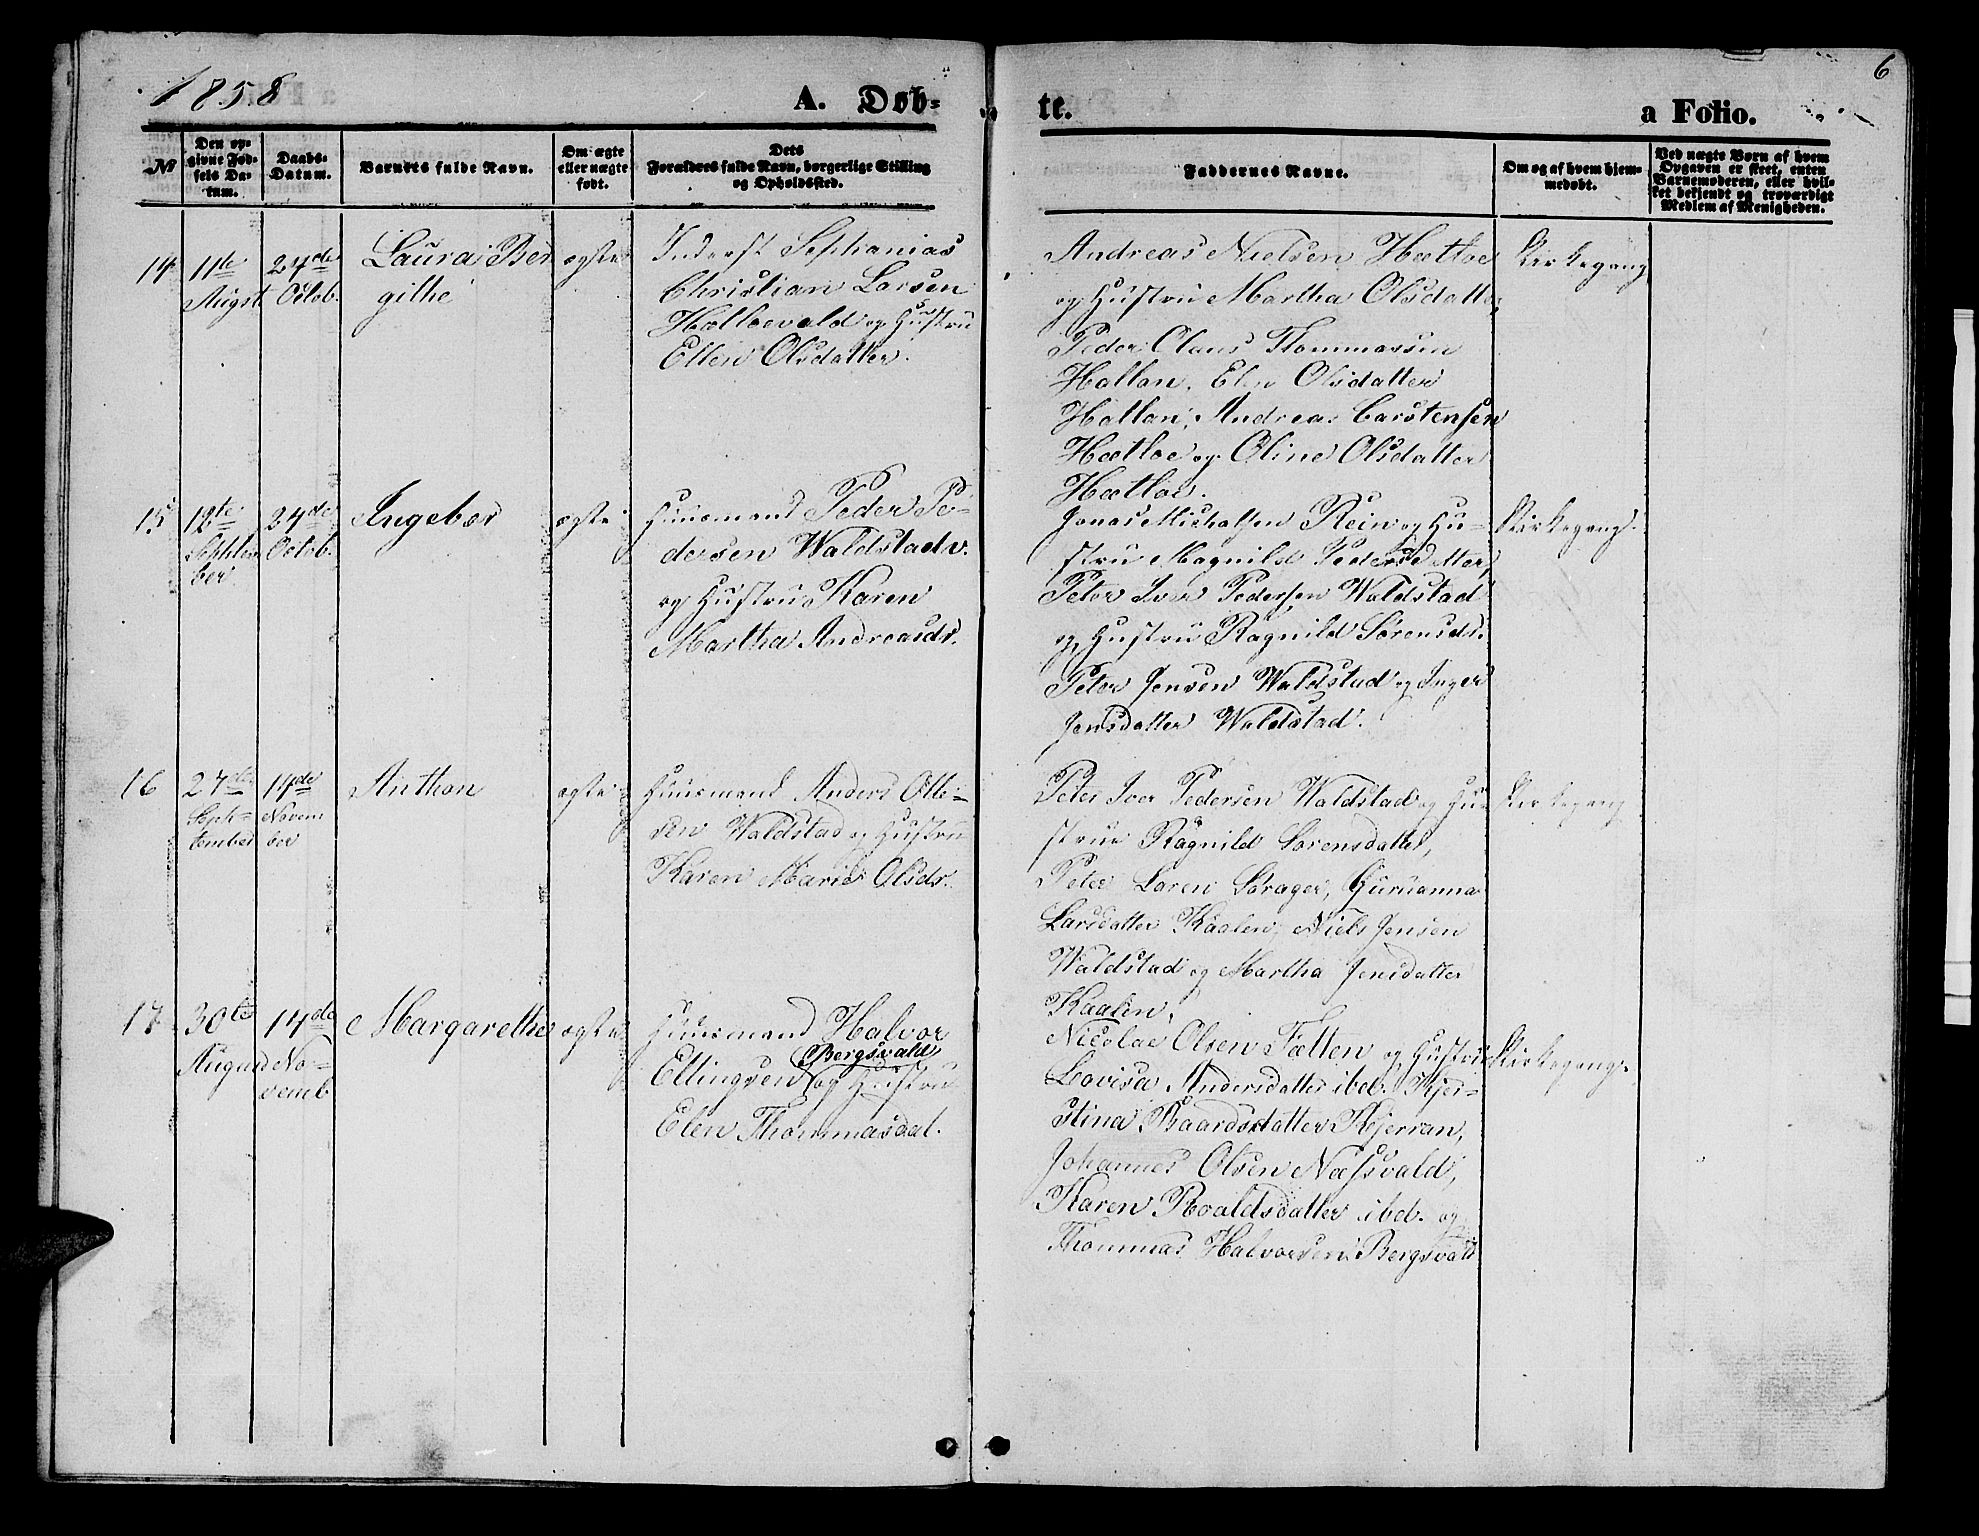 1858
A. Døb-
te.
a Folio.
6
№
Den op-
givne Fød-
sels Da-
tum.
Daabs-
Datum.
Barnets fulde Navn.
Om ægte
eller uægte
født.
Dets
Forældres fulde Navn, borgerlige Stilling
og Opholdssted.
Faddernes Navne.
Om og af hvem hjem-
medøbt.
Ved uægte Børn af hvem
Opgaven er skeet, enten
Barnemoderen, eller hvil-
ket bekjendt og troværdigt
Medlem af Menigheden.
14
11te
Augst
24de
Octob.
Laura Ber
githe
ægte
Inderst Sephanias
Christian Larsen
Hætloevald og Hustru
Ellen Olsdatter.
Andreas Nielsen Hætloe
og Hustru Martha Olsdatter,
Peder Claus Thommassen
Hallan, Elen Olsdatter
Hallan, Andreas Carstensen
Hætloe og Oline Olsdatter
Hætloe.
Kirkegang
15
12te
Septem
ber
24de
Octob.
Ingebor
ægte
Huusmand Peder Pe-
dersen Waldstadv.
og Hustru Karen
Martha Andreasdr.
Jonas Michalsen Rein og Hu-
stru Magnild Pedersdatter,
Peter Iver Pedersen Waldstad
og Hustru Ragnild Sørensdr.
Peter Jensen Waldstad og Inger
Jensdatter Waldstad.
Kirkegang.
16
27de
Sep-
tember
14de
Novem
ber
Anthon
ægte
Huusmand Anders Olle-
sen Waldstad og Hustru
Karen Marie Olsdr.
Peter Iver Pedersen Waldstad og Hu
strue Ragnild Sørensdatter,
Peter Loren Sørager, Guruanna
Larsdatter Kaalen, Niels Jensen
Waldstad og Martha Jensdatter
Kaalen.
Kirkegang
17
30te
August
14de
No-
vemb
Margarethe
ægte
Huusmand Halvor
Ellingsen Bergsvald og Hustru
Elen Thommasdat.
Nicolai Olsen Fætten og Hustrue
Lovisa Andersdatter ibd. Kjer-
stina Baardsdatter Kjerran,
Johannes Olsen Næssvald,
Karen Roaldsdatter ibd. og
Thommas Halvorsen Bergsvald
Kirkegang.